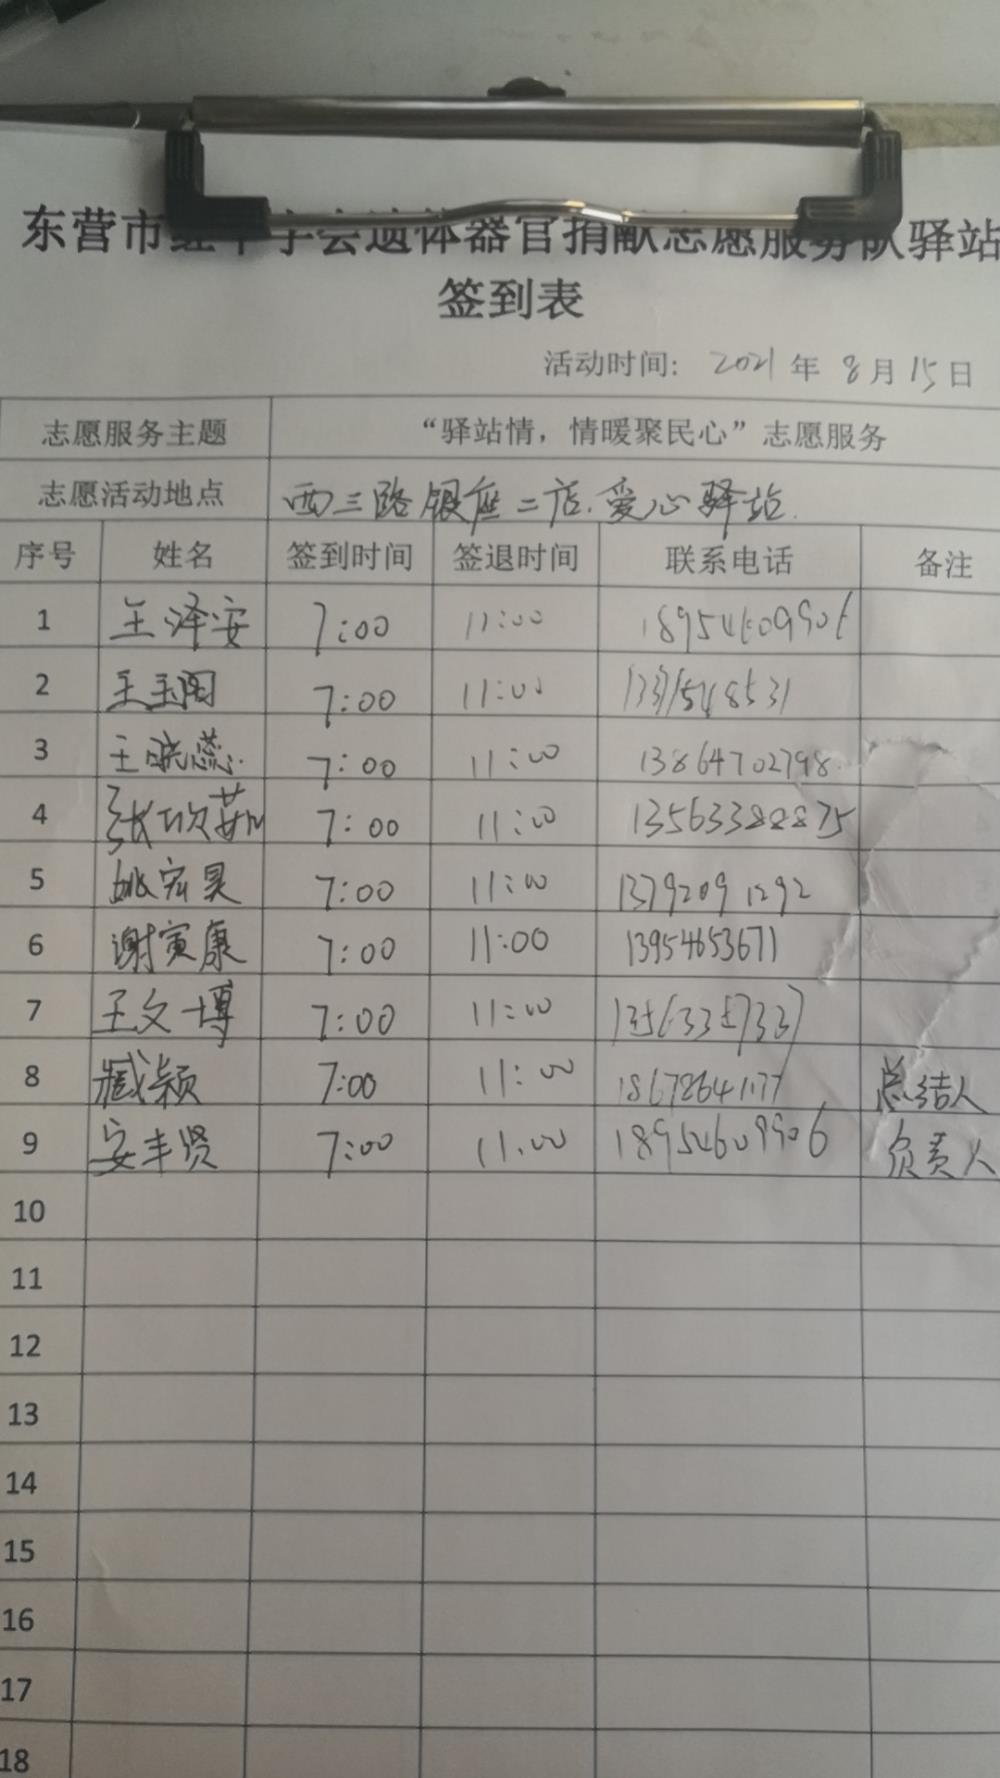 东营市红十字会遗体器官捐献志愿服务队驿站
签到表
活动时间: 2021 年 8 月 15 日
志愿服务主题 “驿站情，情暖聚民心”志愿服务
志愿活动地点 西三路银座二店.爱心驿站.
序号 姓名 签到时间 签退时间 联系电话 备注
1 王泽安 7:00 11:00 18954609906
2 王玉阁 7:00 11:00
3 王晓蕊 7:00 11:00 13864702798
4 张欣茹 7:00 11:00 13563388875
5 姚宏昊 7:00 11:00 13792091292
6 谢寅康 7:00 11:00 13954653671
7 王文博 7:00 11:00
8 臧颖 7:00 11:00 18678641177 总结人
9 安丰贤 7:00 11:00 18954609906 负责人
10
11
12
13
14
15
16
17
18